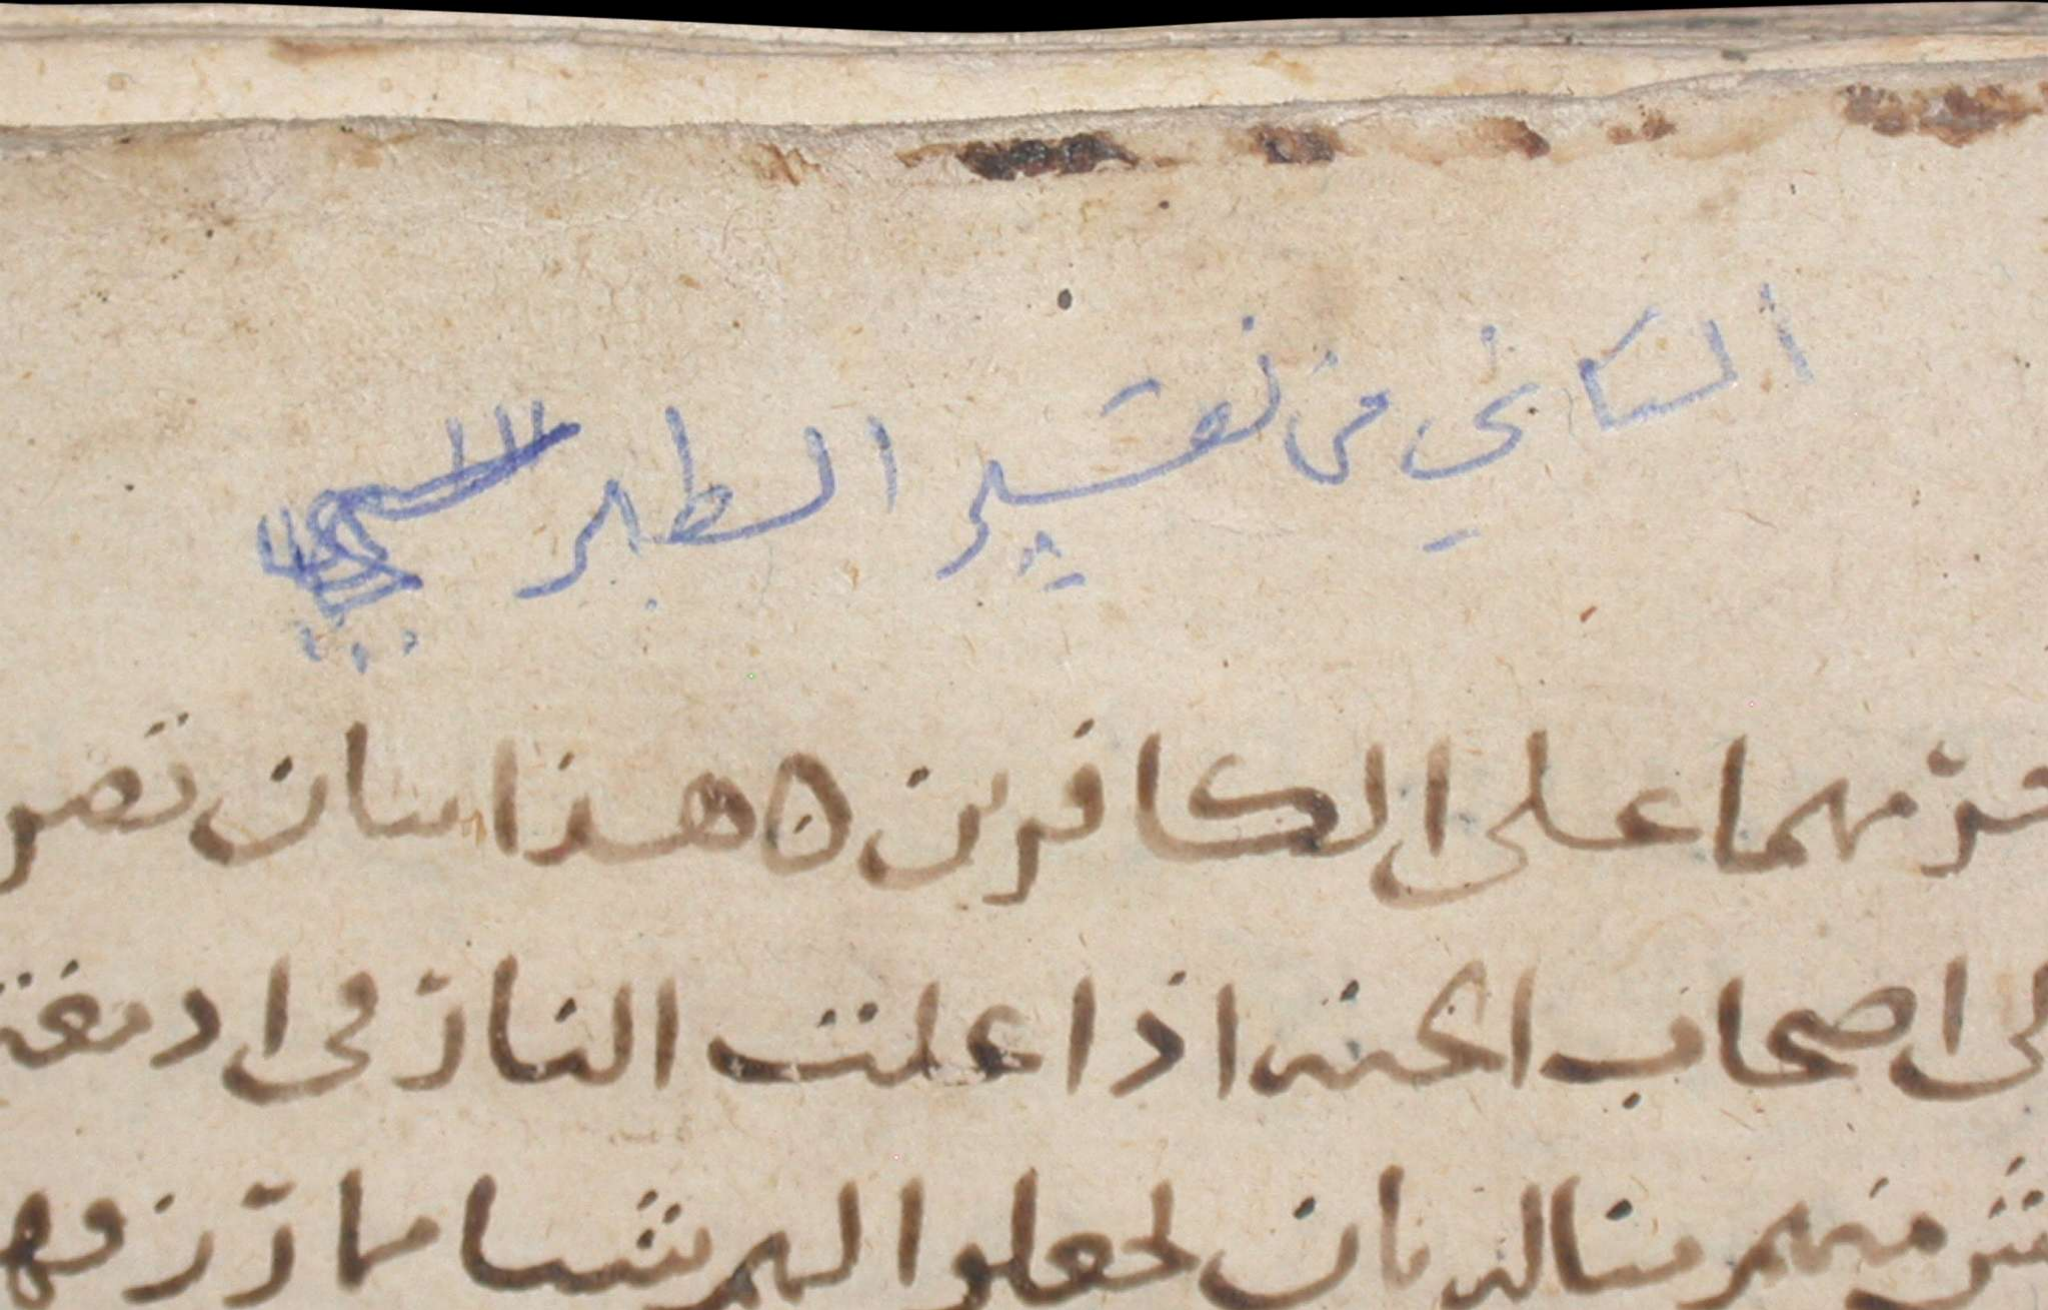 الثاني من تفسير الطبر
حرمهما على الكافرين ه هذا بيان نصر
لى اصحاب الجنة اذا علت النار فى ادمغة
منهم منالدنان لجعلوا الهم شيا مما رزقهم